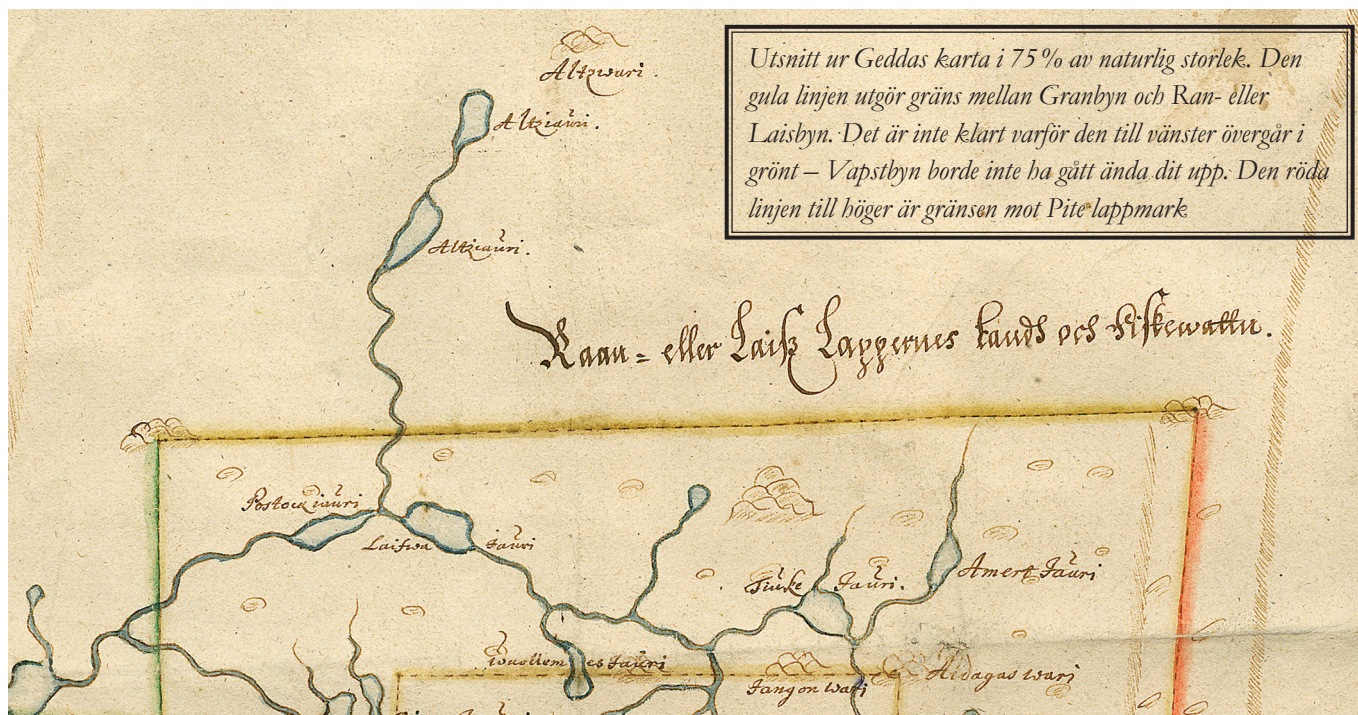 Utsnitt ur Geddas karta i 75% av naturlig storlek. Den
gula linjen utgör gräns mellan Granbyn och Ran- eller
Laisbyn. Det är inte klart varför den till vänster övergår i
grönt – Vapstbyn borde inte ha gått ända dit upp. Den röda
linjen till höger är gränsen mot Pite lappmark
Altzwari.
Altziauri.
Altziauri.
Raan= eller Laiß Lappernes landh och fiskewattn.
Postock iauri
Laiswa Jauri
Amert Jauri
Tiuke Jauri.
Jangon wari